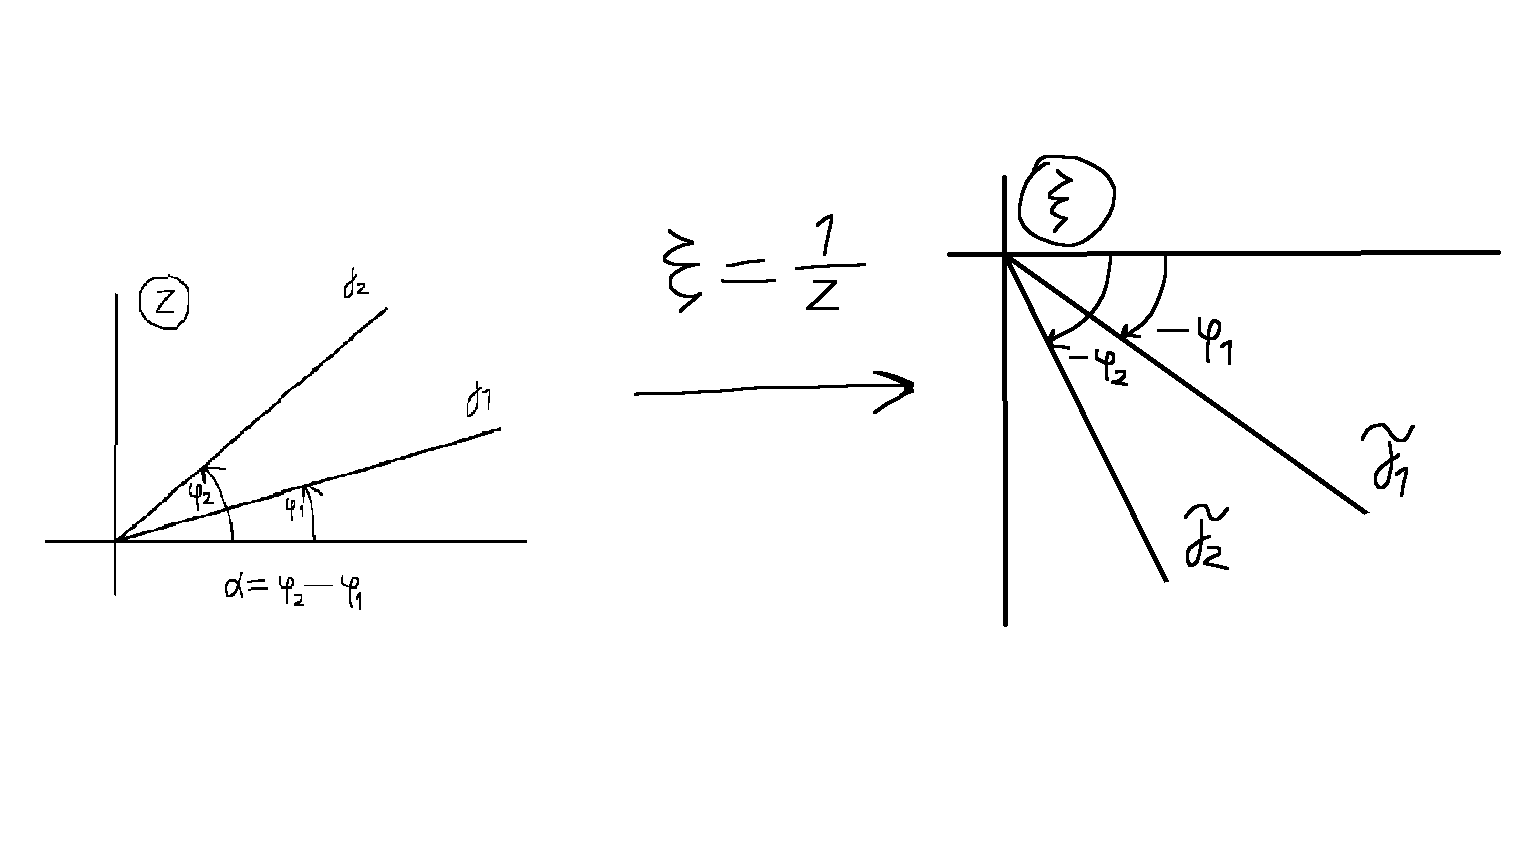 z
γ₂
γ₁
φ₂
φ₁
α = φ₂ − φ₁
ξ = 1/z
ξ
−φ₁
−φ₂
γ̃₁
γ̃₂